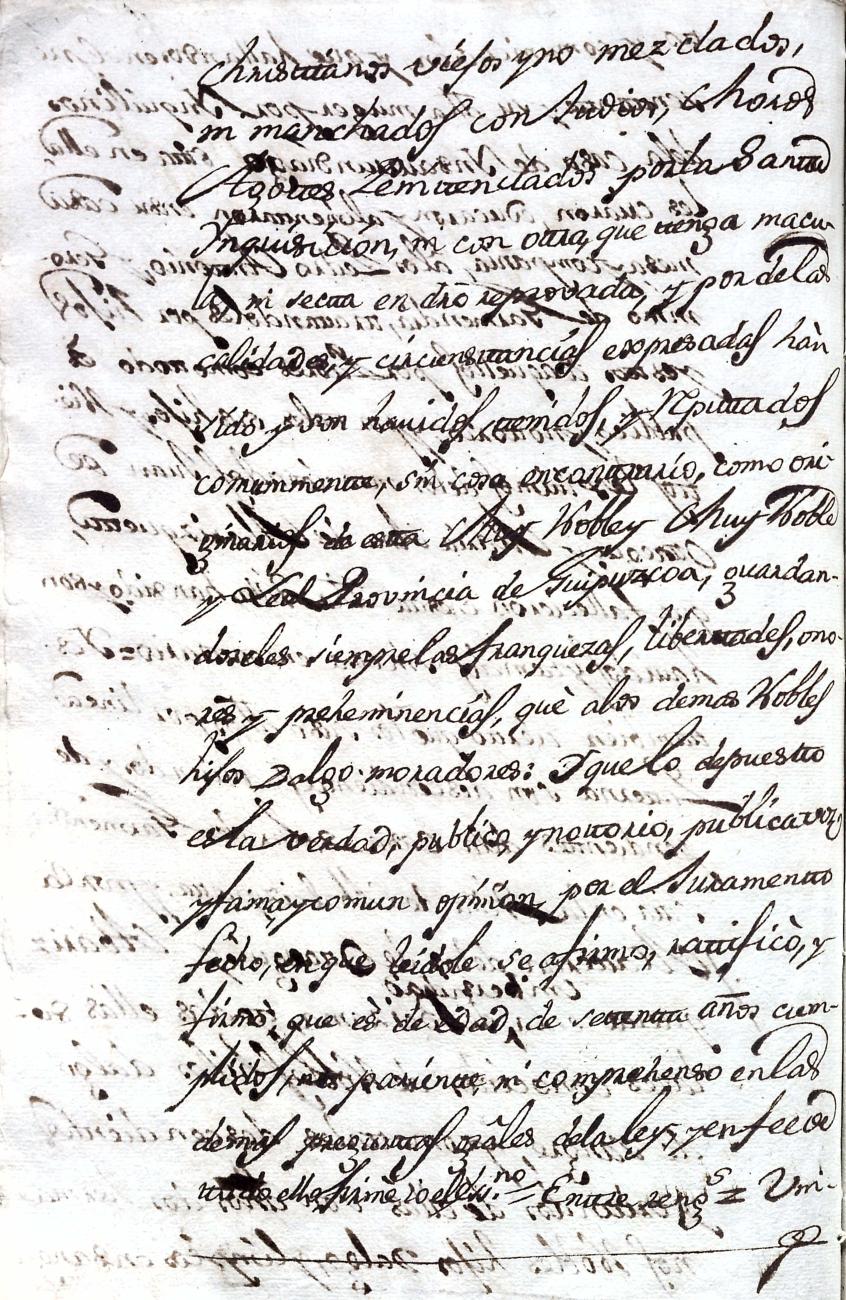 Christianos viejos y no mezclados,
ni manchados con Judios, Moros
Agotes Penitenciados por la Santa
Ynquisicion, ni con otra, que tenga macu-
la, ni secta en dro reprovada, y por de las
calidades, y circunstancias expresadas hàn
sido y son havidos, tenidos, y Reputados
comunmente, sin cosa en contrario, como ori-
ginarios de esta Muy Noble y Muy Noble
y Leal Provincia de Guipuzcoa, guardan-
doseles siempre las franquezas, libertades, ono-
res y preheminencias, què a los demas Nobles
hijos Dalgo moradores: Y que lo depuesto
es la verdad, publico, y nottorio, publica voz,
y fama, y comun opinion por el Juramento
fecho, en que leidole se afirmo, rattificò, y
firmò, que es de edad de setenta años cum-
plidos, no pariente ni comprehenso en las
demas preguntas grâles de la ley, y en fee de
ttodo ello firmè io el essno = Entre rengs = Vni-